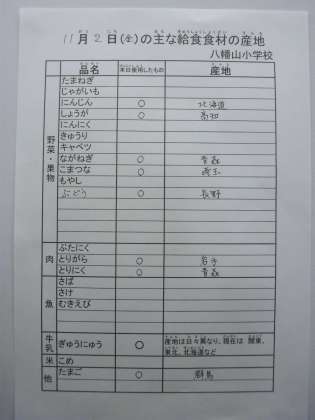 11月2日(金)の主な給食食材の産地
八幡山小学校
品名 本日使用したもの 産地
野菜・果物
たまねぎ
じゃがいも
にんじん ○ 北海道
しょうが ○ 高知
にんにく
きゅうり
キャベツ
ながねぎ ○ 青森
こまつな ○ 埼玉
もやし
ぶどう ○ 長野
肉
ぶたにく
とりがら ○ 岩手
とりにく ○ 青森
魚
さば
さけ
むきえび
牛乳 ぎゅうにゅう ○ 産地は日々異なり、現在は 関東、
東北、北海道など
米 こめ
他 たまご ○ 群馬